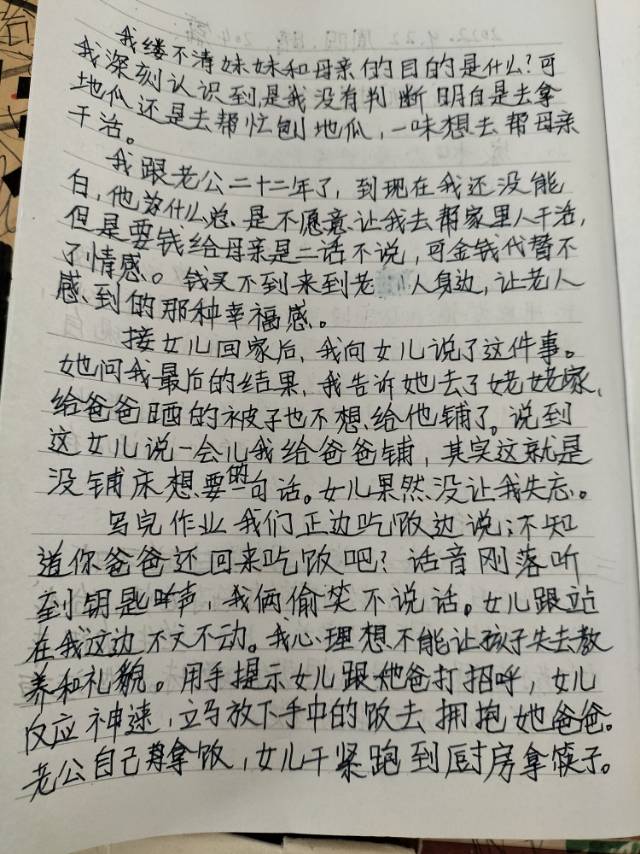 我缕不清妹妹和母亲的目的是什么?可
我深刻认识到,是我没有判断明白是去拿
地瓜还是去帮忙刨地瓜,一味想去帮母亲
干活。
我跟老公二十二年了,到现在我还没能
白,他为什么总是不愿意让我去帮家里人干活,
但是要钱给母亲是二话不说,可金钱代替不
了情感。钱买不到来到老人身边,让老人
感到的那种幸福感。
接女儿回家后,我向女儿说了这件事。
她问我最后的结果,我告诉她去了姥姥家,
给爸爸晒的被子也不想给他铺了。说到
这女儿说一会儿我给爸爸铺,其实这就是
没铺床想要的一句话。女儿果然没让我失忘。
写完作业我们正边吃饭边说:不知
道你爸爸还回来吃饭吧?话音刚落听
到钥匙声,我俩偷笑不说话。女儿跟站
在我这边不文不动。我心理想不能让孩子失去教
养和礼貌。用手提示女儿跟她爸打招呼,女儿
反应神速,立马放下手中的饭去拥抱她爸爸。
老公自己拿饭,女儿干紧跑到厨房拿筷子。